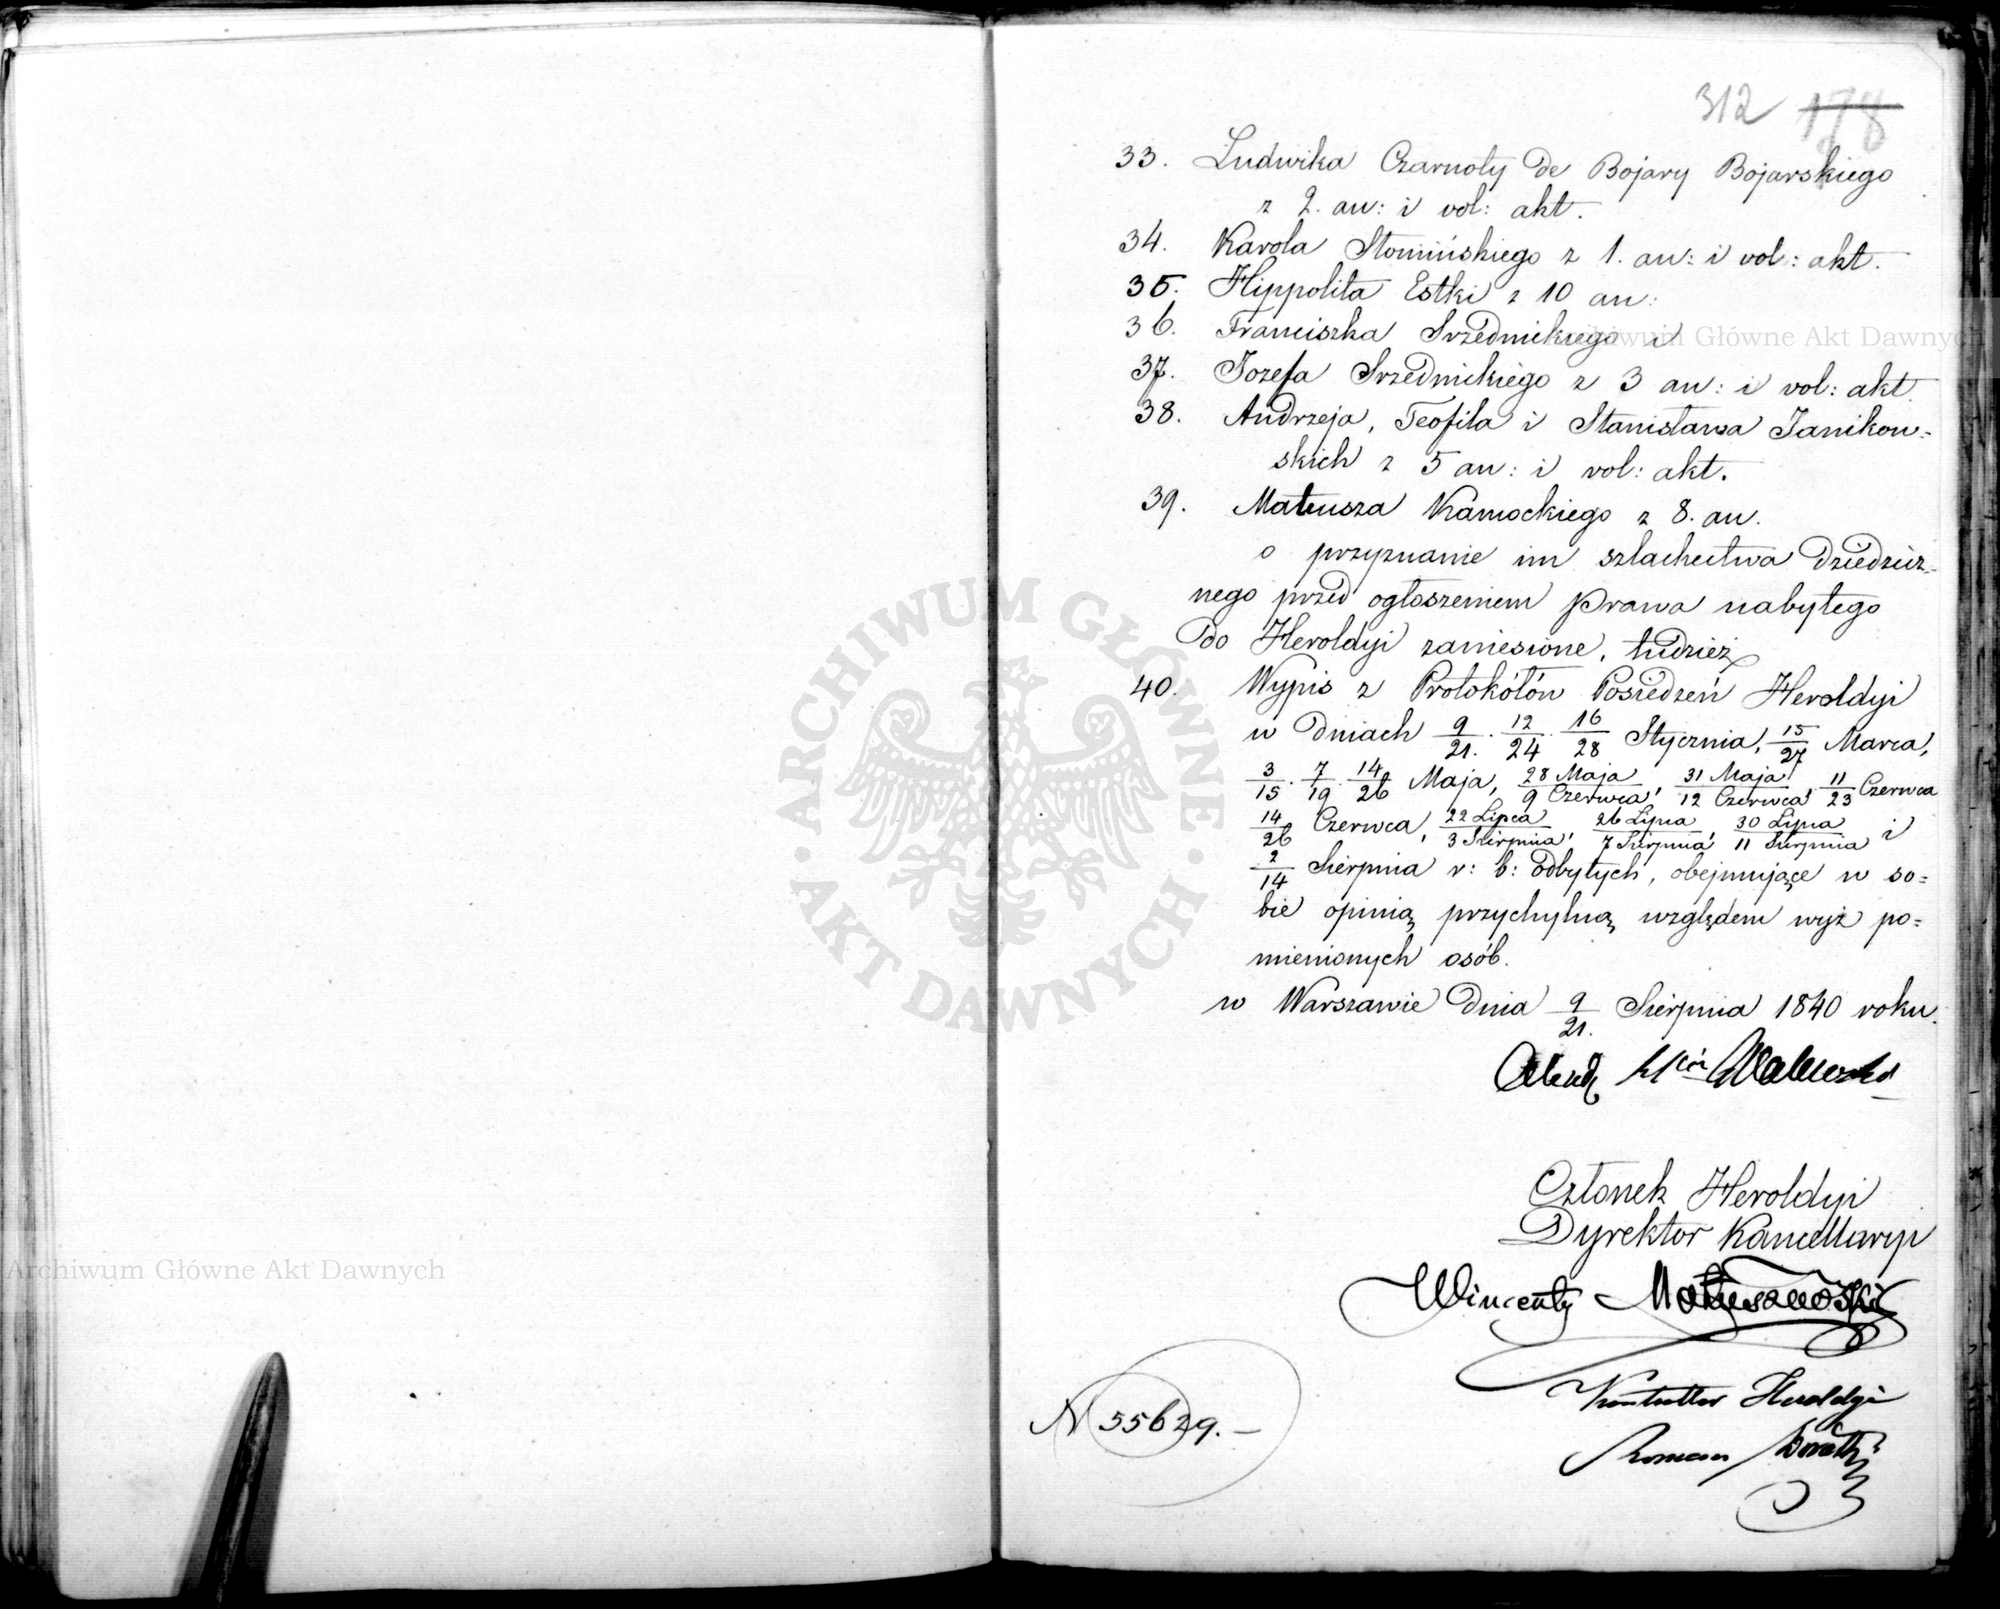 312 178
33. Ludwika Czarnoty de Bojary Bojarskiego
z 2. an: i vol: akt.
34. Karola Słomińskiego z 1. an: i vol: akt.
35. Hippolita Estki z 10 an:
36. Franciszka Srzednickiego i
37. Jozefa Srzednickiego z 3 an: i vol: akt.
38. Andrzeja, Teofila i Stanisława Janikow=
skich z 5 an: i vol: akt.
39. Mateusza Kamockiego z 8. an.
o przyznanie im szlachectwa dziedzicz=
nego przed ogłoszeniem prawa nabytego
do Heroldyi zaniesione, tudzież
40. Wypis z Protokółów Posiedzeń Heroldyi
w dniach 9/21. 12/24. 16/28 Stycznia, 15/27 Marca,
3/15. 7/19. 14/26 Maja, 28 Maja/9 Czerwca, 31 Maja/12 Czerwca, 11/23 Czerwca
14/26 Czerwca, 22 Lipca/3 Sierpnia, 26 Lipca/7 Sierpnia, 30 Lipca/11 Sierpnia i
2/14 Sierpnia r: b: odbytych, obejmujące w so=
bie opinią przychylną względem wyż po=
mienionych osób.
w Warszawie dnia 9/21. Sierpnia 1840 roku.
Walewski
Członek Heroldyi
Dyrektor Kancellaryi
Wincenty Matuszewski
Heroldyi
Roman
N 55629.—
ARCHIWUM GŁÓWNE AKT DAWNYCH
Archiwum Główne Akt Dawnych
Archiwum Główne Akt Dawnych